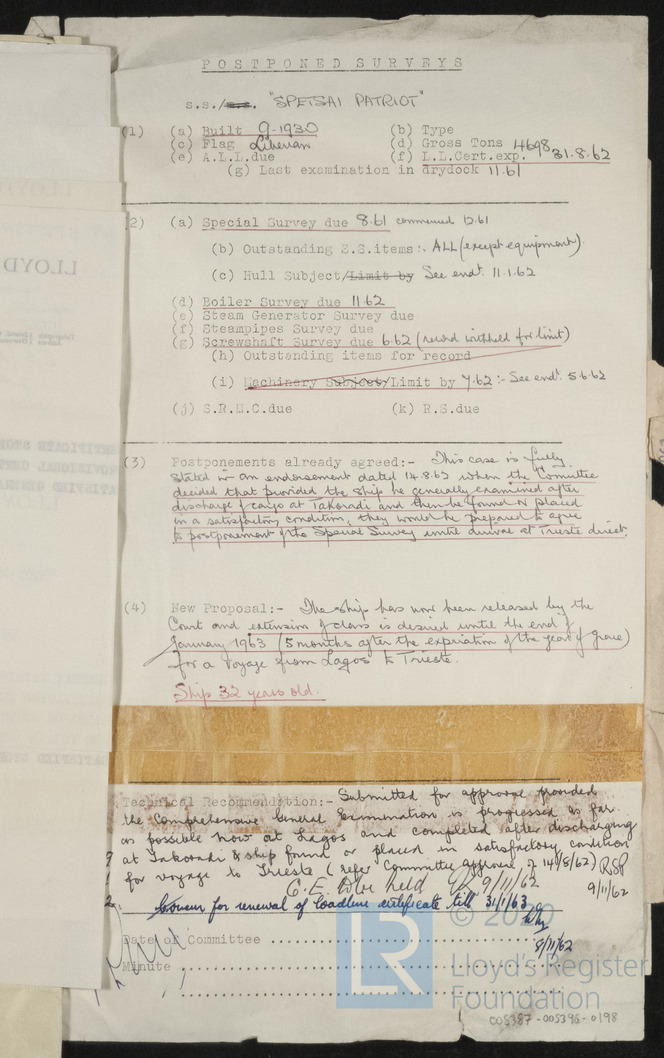 POSTPONED SURVEYS
s.s./m.s. "SPETSAI PATRIOT"
(1) (a) Built 9-1930 (b) Type
(c) Flag Liberian (d) Gross Tons 4698
(e) A.L.L.due (f) L.L.Cert.exp. 31.8.62
(g) Last examination in drydock 11.61
2) (a) Special Survey due 8.61 commenced 12.61
(b) Outstanding S.S.items:- ALL (except equipment).
(c) Hull Subject/Limit by See endt. 11.1.62
(d) Boiler Survey due 11.62
(e) Steam Generator Survey due
(f) Steampipes Survey due
(g) Screwshaft Survey due 6.62 (record withheld for limit)
(h) Outstanding items for record
(i) Machinery Subject/Limit by 7.62 :- See endt. 5.6.62
(j) S.R.M.C.due (k) R.S.due
(3) Postponements already agreed:- This case is fully
stated in an endorsement dated 14.8.62 when the Committee
decided that provided the ship be generally examined after
discharge of cargo at Takoradi and then be found or placed
in a satisfactory condition, they would be prepared to agree
to postponement of the Special Survey until arrival at Trieste direct.
(4) New Proposal:- The ship has now been released by the
Court and extension of class is desired until the end of
January 1963 (5 months after the expiration of the year of grace)
for a voyage from Lagos to Trieste.
Ship 32 years old.
Technical Recommendation:- Submitted for approval provided
the Comprehensive General Examination is progressed as far
as possible now at Lagos and completed after discharging
at Takoradi & ship found or placed in satisfactory condition
for voyage to Trieste (refer Committee approval of 14/8/62) RSP
9/11/62
C.E. held 9/11/62
for renewal of loadline certificate till 31/1/63
8/11/62
Date of Committee
Minute
© 2020
LR
Lloyd's Register
Foundation
005387-005396-0198
LLOYD